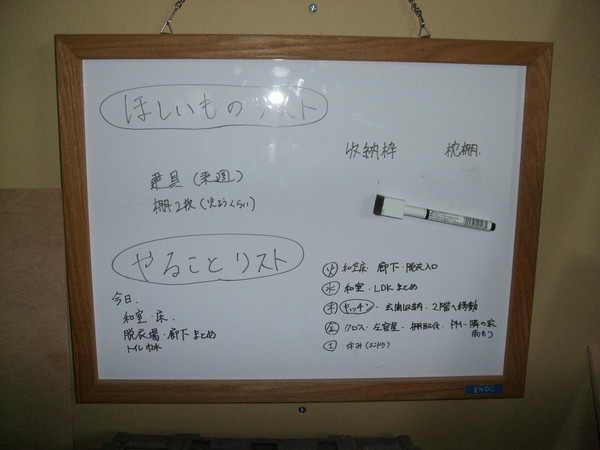 ほしいものリスト
収納枠 枕棚
建具(来週)
棚2枚(火ようくらい)
やることリスト
今日、
和室・床
脱衣場・廊下まとめ
トイレ
火 和室床 廊下・脱衣入口
水 和室・LDKまとめ
木 キッチン・玄関収納・2階へ移動
金 クロス・左官屋・棚取付
土 休み